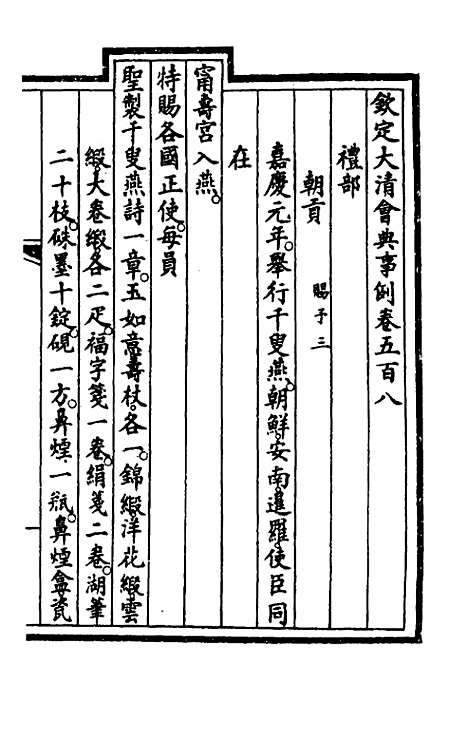 欽定大清會典事例卷五百八
禮部
朝貢 賜予三
嘉慶元年。舉行千叟燕。朝鮮安南暹羅使臣同
在
甯壽宮入燕。
特賜各國正使。每員
聖製千叟燕詩一章。玉如意壽杖。各一。錦緞。洋花緞。雲
緞。大卷緞。各二疋。福字箋一卷。絹箋二卷。湖筆
二十枝。硃墨十錠。硯一方。鼻煙一瓶。鼻煙盒瓷